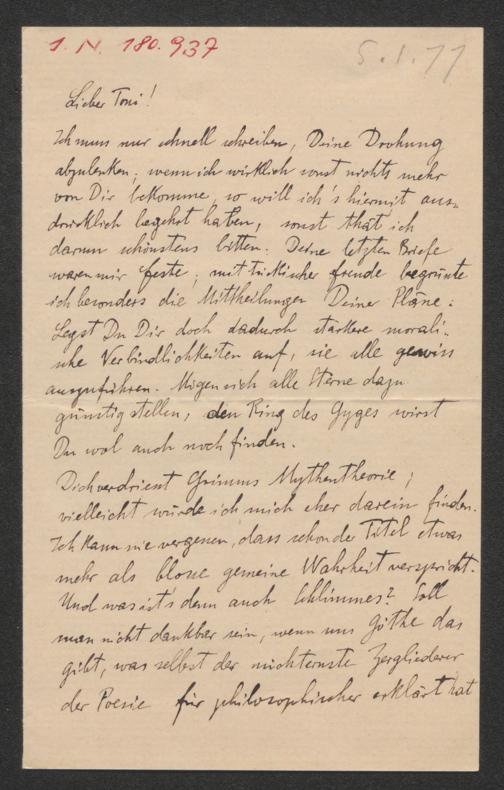 J. N. 180.937
5.1.77
Lieber Toni!
Ich muss nur schnell schreiben, Deine Drohung
abzulenken; wenn ich wirklich sonst nichts mehr
von Dir bekomme, so will ich's hiermit aus-
drücklich begehrt haben, sonst thät ich
darum schönstens bitten. Deine letzten Briefe
waren mir Feste; mit türkischer Freude begrüsste
ich besonders die Mittheilungen Deiner Pläne:
Legst Du Dir doch dadurch stärkere morali-
sche Verbindlichkeiten auf, sie alle gewiss
auszuführen. Mögen sich alle Sterne dazu
günstig stellen, den Ring des Gyges wirst
Du wol auch noch finden.
Dich verdriesst Grimms Mythentheorie;
vielleicht würde ich mich eher darein finden.
Ich kann nie vergessen, dass schon der Titel etwas
mehr als blosse gemeine Wahrheit verspricht.
Und was ist's denn auch Schlimmes? Soll
man nicht dankbar sein, wenn uns Göthe das
gibt, was selbst der nüchternste Zergliederer
der Poesie für philosophischer erklärt hat